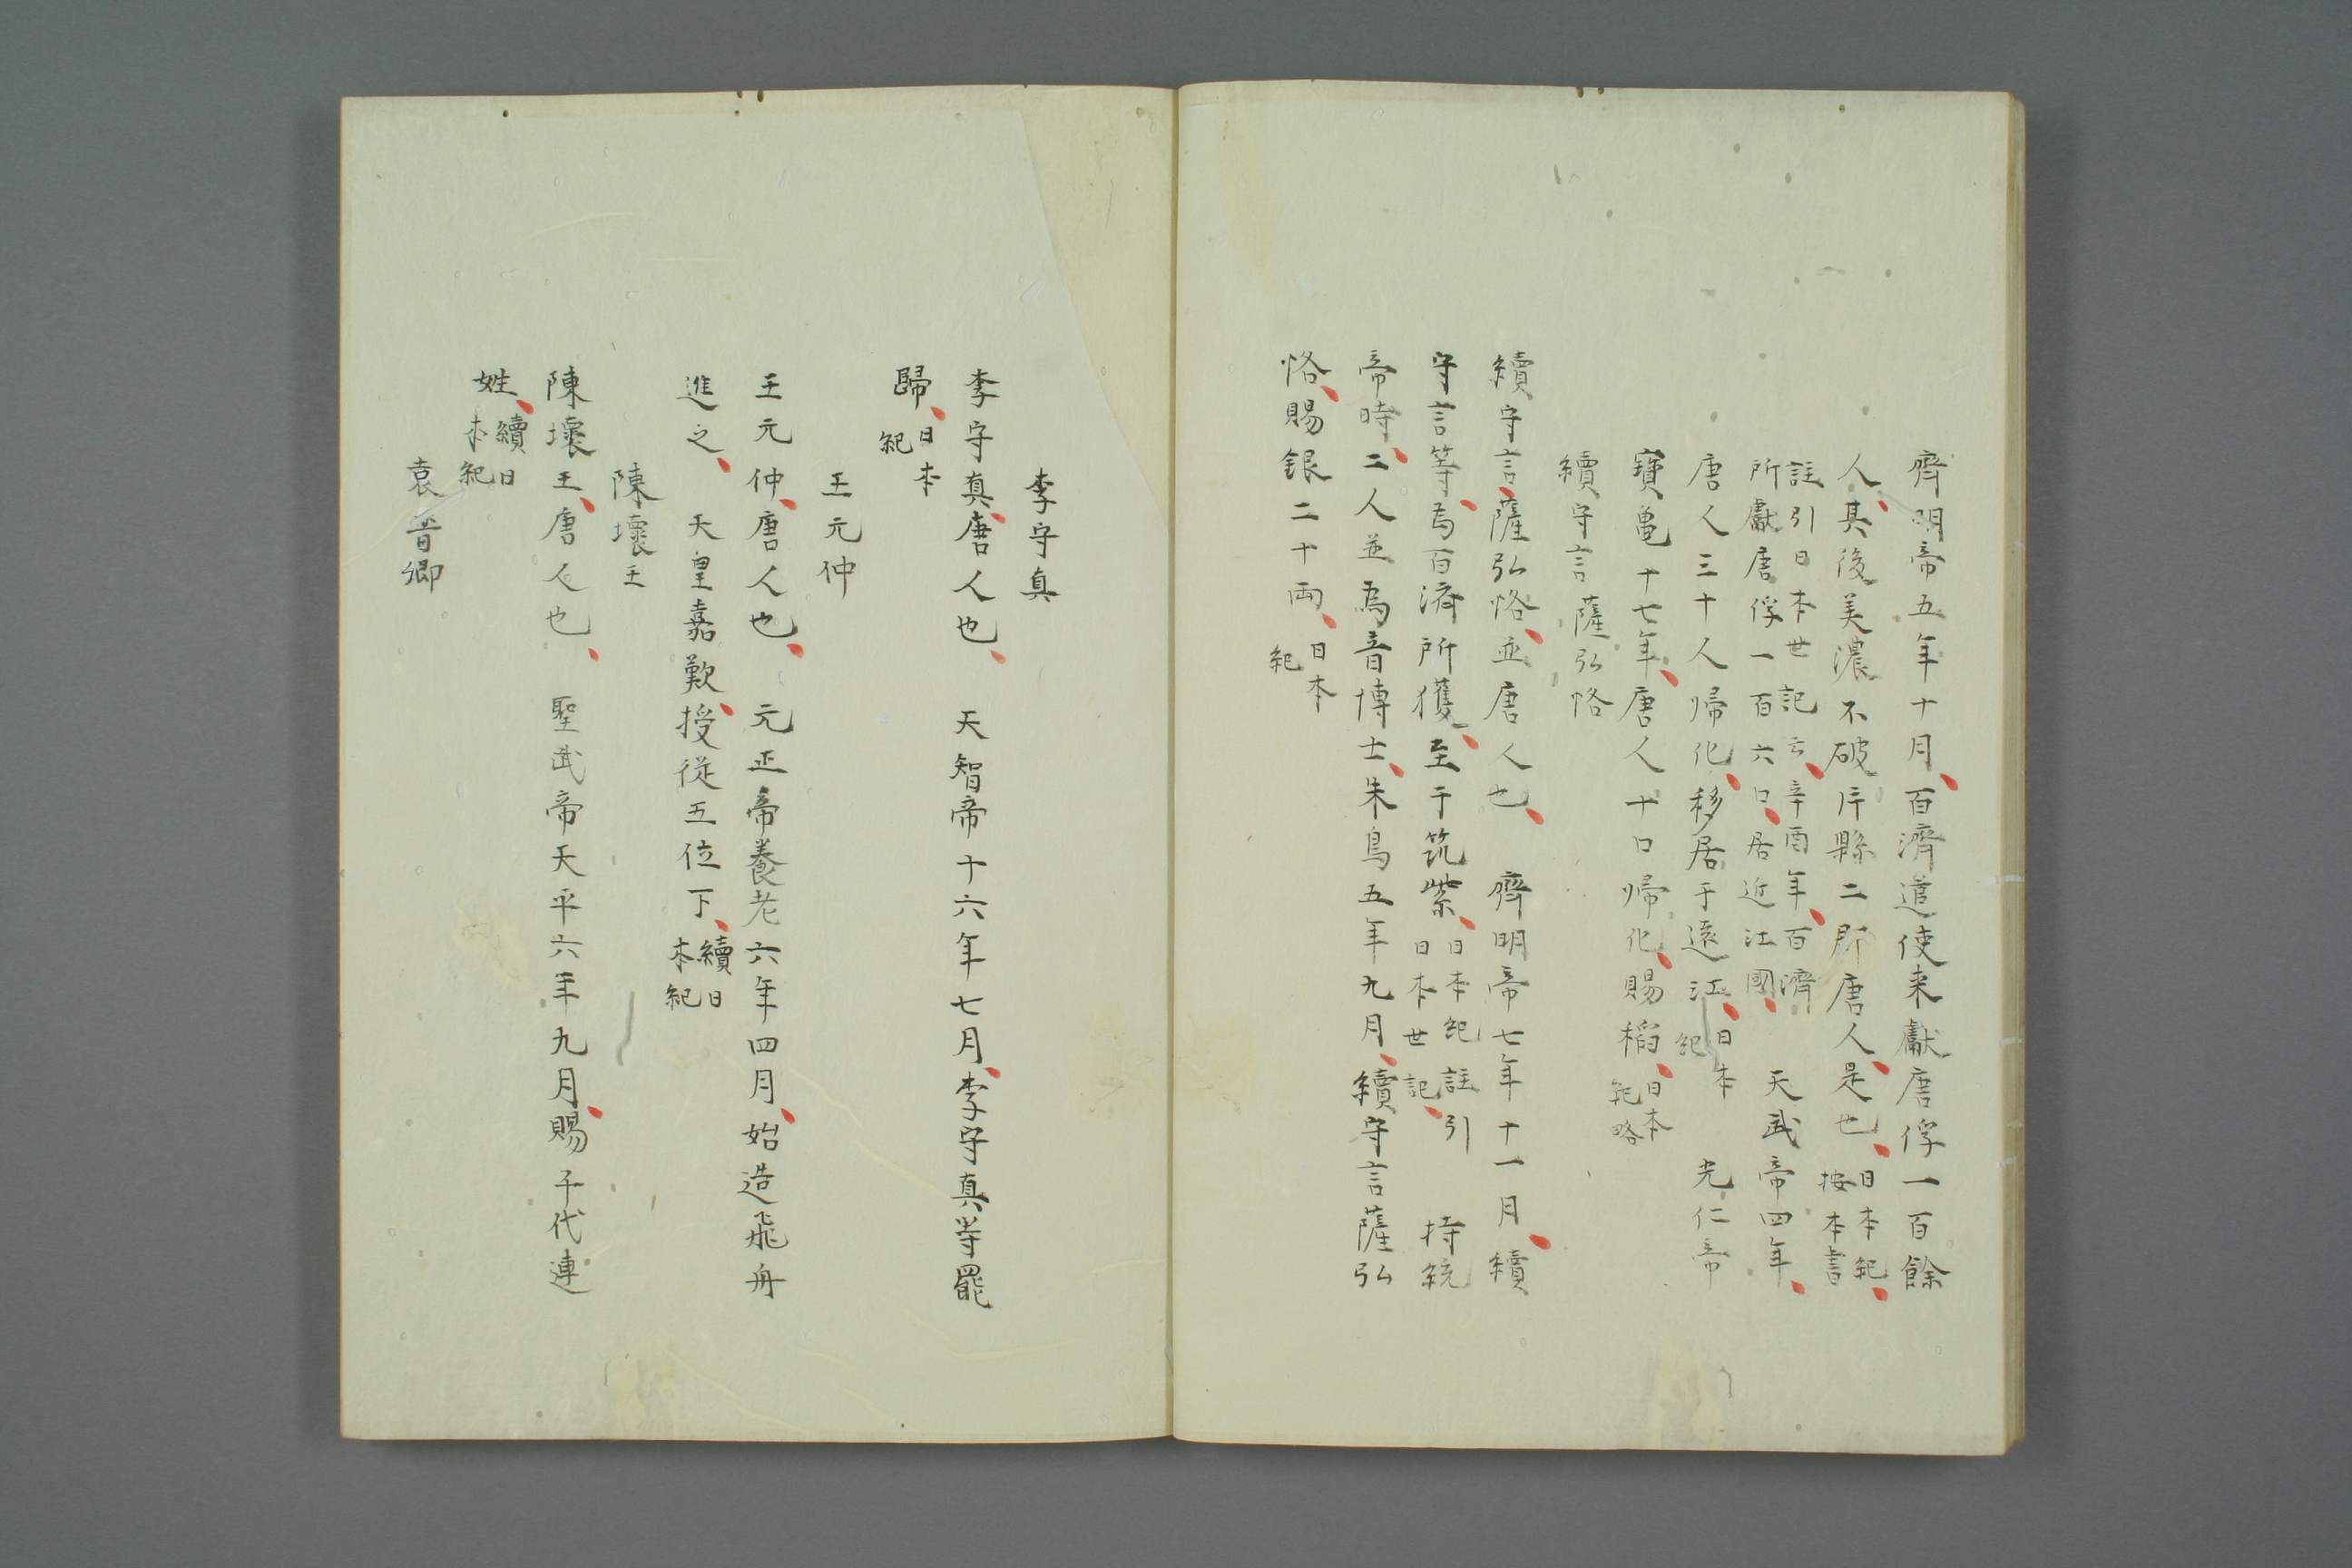 齊明帝五年十月、百濟遣使来獻唐俘一百餘
人、其後美濃不破片縣二郡唐人、是也、日本紀、按本書
註引日本世記云、辛酉年、百濟所獻唐俘一百六口、居近江國、 天武帝四年、
唐人三十人帰化、移居于遠江、日本紀 光仁帝
寶亀十七年、唐人十口帰化、賜稻、日本紀略
續守言薩弘恪
續守言、薩弘恪、並唐人也、 齊明帝七年十一月、續
守言等、為百済所獲、至于筑紫、日本紀註引日本世記、 持統
帝時、二人並為音博士、朱鳥五年九月、續守言薩弘
恪、賜銀二十両、日本紀
李守真
李守真、唐人也、 天智帝十六年七月、李守真等罷
歸、日本紀
王元仲
王元仲、唐人也、 元正帝養老六年四月、始造飛舟
進之、 天皇嘉歎、授從五位下、續日本紀
陳壊王
陳壊王、唐人也、 聖武帝天平六年九月、賜千代連
姓、續日本紀
袁晋卿